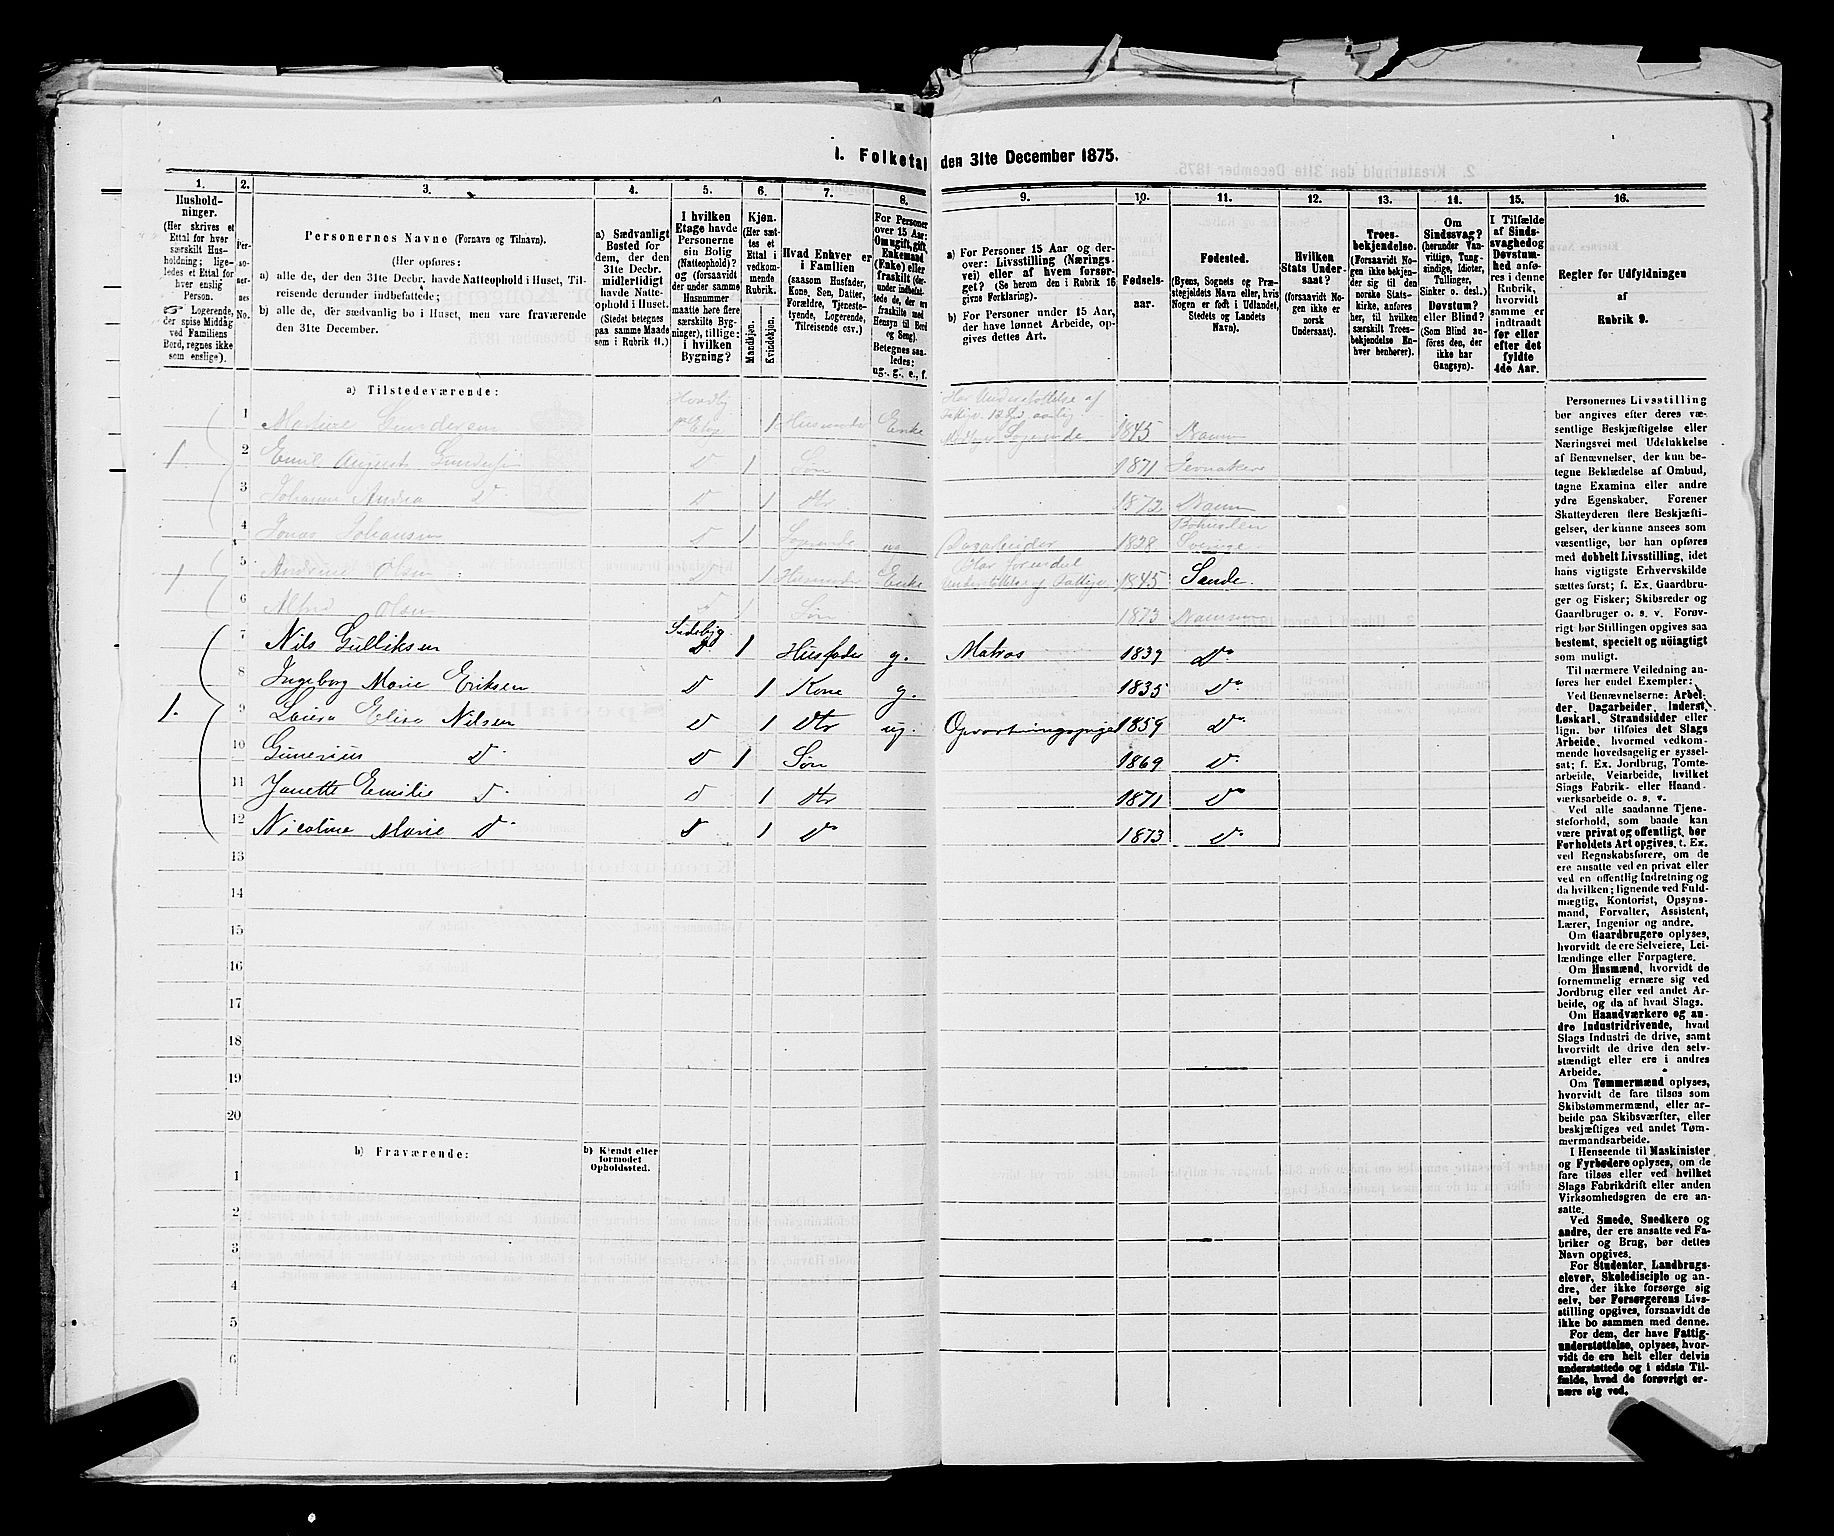 1. Folketal den 31te December 1875.
1. 2. 3. 4. 5. 6. 7. 8. 9. 10. 11. 12. 13. 14. 15. 16.
Husholdninger.
(Her skrives et
Ettal for hver
særskilt Husholdning;
ligeledes et Ettal for
hver enslig
Person.
Logerende,
der spise Middag
ved Familiens
Bord, regnes ikke
som enslige).
Personernes No.
Personernes Navne (Fornavn og Tilnavn).
(Her opføres:
a) alle de, der den 31te Decbr. havde Natteophold i Huset, Tilreisende
derunder indbefattede;
b) alle de, der sædvanlig bo i Huset, men vare fraværende
den 31te December.
a) Sædvanligt
Bosted for
dem, der den
31te Decbr.
midlertidigt
havde Natteophold
i Huset.
(Stedet betegnes
paa samme Maade
som i Rubrik 11.)
I hvilken
Etage havde
Personerne
sin Bolig
(Natteophold)?
og (forsaavidt
der under samme
Husnummer
maatte høre flere
særskilte Bygninger),
tillige:
i hvilken
Bygning?
Kjøn.
(Her sættes
et
Ettal i
vedkommende
Rubrik.
Mandkjøn.
Kvindekjøn.
Hvad Enhver er
i Familien
(saasom Husfader,
Kone, Søn, Datter,
Forældre, Tjenestetyende,
Logerende,
Tilreisende osv.)
For Personer
over 15 Aar:
Om ugift, gift,
Enkemand
(Enke) eller
fraskilt
Betegnes saaledes:
ug., g., e., f.
a) For Personer 15 Aar og derover:
Livsstilling (Næringsvei)
eller af hvem forsørget?
(Se herom den i Rubrik 16
givne Forklaring).
b) For Personer under 15 Aar,
der have lønnet Arbeide, opgives
dettes Art.
Fødselsaar.
Fødested.
(Byens, Sognets og Præstegjeldets
Navn eller, hvis
Nogen er født i Udlandet,
Stedets og Landets
Navn).
Hvilken
Stats Undersaat?
(forsaavidt Nogen
ikke er
norsk
Undersaat).
Troesbekjendelse.
(Forsaavidt Nogen
ikke bekjender
sig til den
norske Statskirke,
anføres
her, til hvilken
særskilt Troesbekjendelse
Enhver
henhører).
Om
Sindssvag?
(herunder Vanvittige,
Tungsindige,
Idioter,
Tullinger,
Sinker o. desl.)
Døvstum?
eller Blind?
(Som Blind anføres
den, der
ikke har
Gangsyn).
I Tilfælde
af Sindssvaghed
og
Døvstumhed
anføres
i denne
Rubrik,
hvorvidt
samme er
indtraadt
før eller
efter det
fyldte
4de Aar.
Regler for Udfyldningen
af
Rubrik 9.
a) Tilstedeværende:
1 Gundersen 1 Husmoder Enke Logerende 1845
1 2 Emil August Gundersen D 1 Søn 1871 Jevnakers
3 Johanne Andrea D D 1 Dtr. 1872
4 Jonas Johansen D 1 Logerende Dagarbeider 1828 Bohuslen Sverige
1 5 Olsen D 1 Husmoder Enke 1845 Sande.
6 Alfred Olsen 1 Søn 1873
7 Nils Gulliksen Sidebyg. D 1 Husfader g. Matros 1839 Do
8 Ingeborg Marie Eriksen D 1 Kone g. 1835 Do
1. 9 Lovisa Elisa Nilsen D 1 Dtr ug. Opvartningspige 1859 Do
10 Gunerius D. D 1 Søn 1869 D.
11 Janette Emilie D. D 1 Dtr 1871 Do
12 Nicoline Marie D. D 1 Do 1873 Do
13
14
15
16
17
18
19
20
b) Fraværende:
b) Kjendt eller
formodet
Opholdssted.
1
2
3
4
5
6
Personernes Livsstilling
bør angives efter deres væsentlige
Beskjæftigelse eller
Næringsvei med Udelukkelse
af Benævnelser, der kun betegne
Beklædelse af Ombud,
tagne Examina eller andre
ydre Egenskaber. Forener
Skatteyderen flere Beskjæftigelser,
der kunne ansees som
væsentlige, bør han opføres
med dobbelt Livsstilling, idet
hans vigtigste Erhvervskilde
sættes først; f. Ex. Gaardbruger
og Fisker; Skibsreder og
Gaardbruger o. s. v. Forøvrigt
bør Stillingen opgives saa
bestemt, specielt og nøiagtigt
som muligt.
Til nærmere Veiledning anføres
her endel Exempler:
Ved Benævnelserne: Arbeider,
Dagarbeider, Inderst,
Løskarl, Strandsidder eller
lign. bør tilføies det Slags
Arbeide, hvormed vedkommende
hovedsagelig er sysselsat;
f. Ex. Jordbrug, Tomtearbeide,
Veiarbeide, hvilket
Slags Fabrik- eller Haandværksarbeide
o. s. v.
Ved alle saadanne Tjenesteforhold,
som baade kan
være privat og offentligt, bør
Forholdets Art opgives, t. Ex.
ved Regnskabsførere, om de
ere ansatte ved en privat eller
ved en offentlig Indretning og
da hvilken; lignende ved Fuldmægtig,
Kontorist, Opsynsmand,
Forvalter, Assistent,
Lærer, Ingeniør og andre.
Om Gaardbrugere oplyses,
hvorvidt de ere Selveiere, Leilændinge
eller Forpagtere.
Om Husmænd, hvorvidt de
fornemmelig ernære sig ved
Jordbrug eller ved andet Arbeide,
og da af hvad Slags.
Om Haandværkere og andre
Industridrivende, hvad
Slags Industri de drive, samt
hvorvidt de drive den selvstændigt
eller ere i andres
Arbeide.
Om Tømmermænd oplyses,
hvorvidt de fare tilsøs som
Skibstømmermænd, eller arbeide
paa Skibsværfter, eller
beskjæftiges ved andet Tømmermandsarbeide.
I Henseende til Maskinister
og Fyrbødere oplyses, om de
fare tilsøs eller ved hvilket
Slags Fabrikdrift eller anden
Virksomhedsgren de ere ansatte.
Ved Smede, Snedkere og
andre, der ere ansatte ved Fabriker
og Brug, bør dettes
Navn opgives.
For Studenter, Landbrugselever,
Skoledisciple og andre,
der ikke forsørge sig
selv, bør Forsørgerens Livsstilling
opgives, forsaavidt de
ikke bo sammen med denne.
For dem, der have Fattigunderstøttelse,
oplyses, hvorvidt
de ere helt eller delvis
understøttede og i sidste Tilfælde,
hvad de forøvrigt ernære
sig ved.